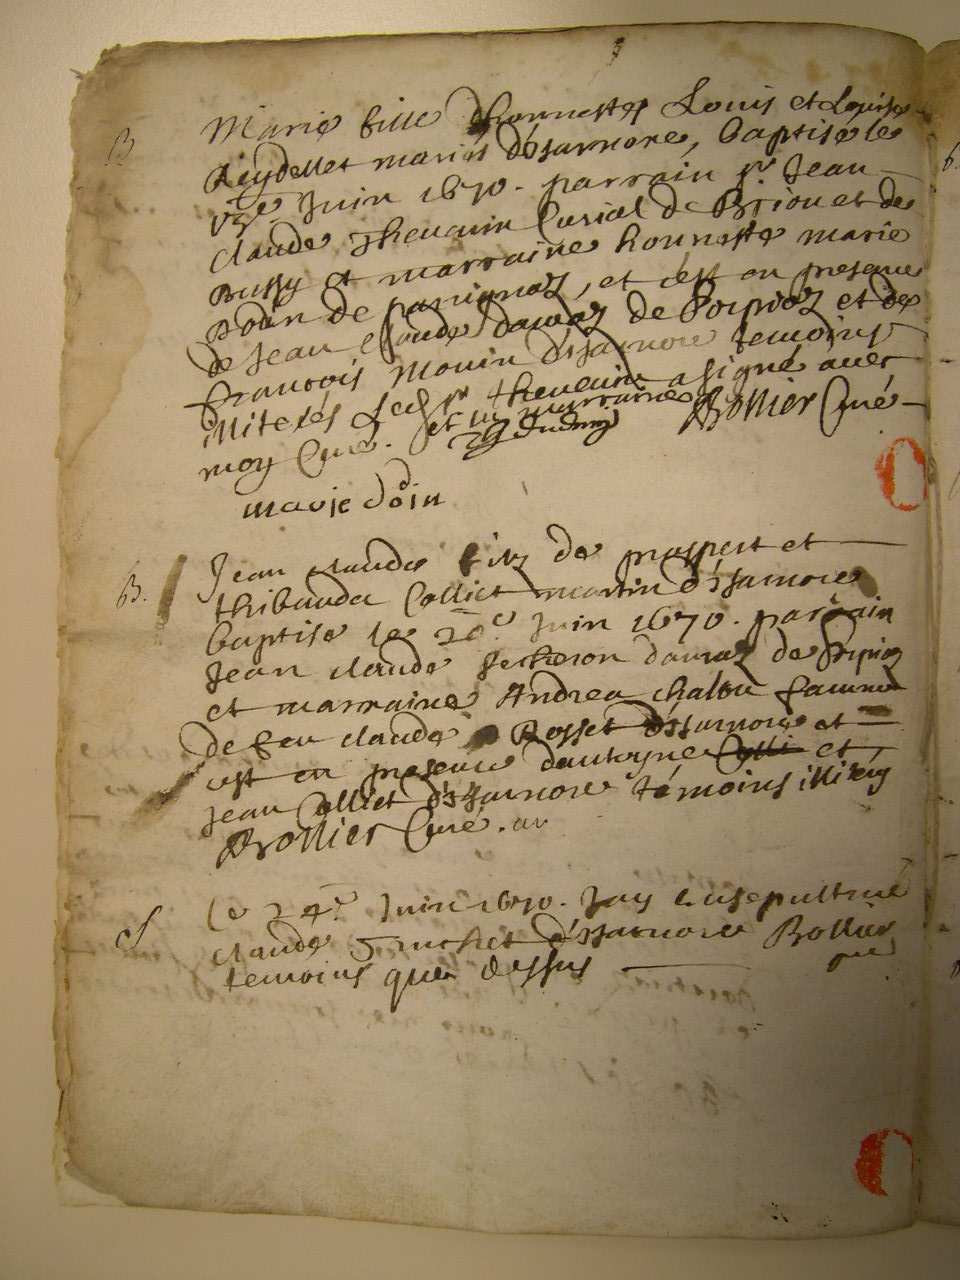 B
Marie fille d'honnestes Louis et Louise
Reydellet mariés d'Isarnore, baptisé le
Juin 1670. parrain Sr Jean
Claude Thevenin Curial de Brion et de
Bussy et marraine honneste marie
Odin de, et c'est en presence
de Jean Claude de et de
françois Monin d'Isarnore temoins
illiterés Ledt Sr thevenin a signé avec
moy Curé. et la marraine Brollier Curé
marie dodin
B.
Jean claude filz de prospert et
thibauda Colliet d'Isarnore
baptise le 20e. Juin 1670. parrain
Jean claude de
et marraine Andrea chalon famme
de feu claude Rosset d'Isarnore et
cest en presence dantoyne et
Jean Colliet d'Isarnore témoins illiterés
Brollier Curé.
S
le 24e. Juin 1670. Jay ensepulturé
claude d'Isarnore Brollier
temoins que dessus curé